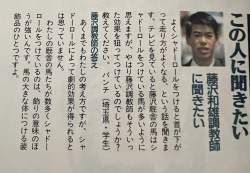 この人に聞きたい
藤沢和雄調教師
に聞きたい
よくシャドーロールをつけると首が下が
って走り方がよくなる、という話を聞きま
す。テレビを見ていると藤沢厩舎の馬はシ
ャドーロールをつけている馬が多いようで
すが、やはり藤沢調教師もそういっ
た効果を狙ってつけているのでしょうか？
教えてください。パンチ（埼玉県・学生）
藤沢調教師の答え
あくまでもわたしの考えですが、シャ
ドーロールによって劇的効果が得られると
は思っていません。
わたしの厩舎の馬たちが数多くシャドー
ロールをつけているのは、飾りの意味のほ
うが強いんです。馬の大きな体につける装
飾品のひとつですよ。